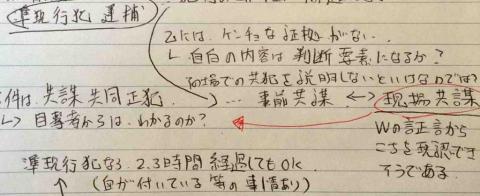 準現行犯 逮捕
乙には、ケンチョな証拠がない。
↳ 自白の内容は判断要素になるか?
現場での共犯を説明しないといけないのでは?
件は、共謀共同正犯. … 事前共謀 ↔ 現場共謀
↳ 目撃者からは、わかるのか?
Wの証言から
こを現認でき
そうである.
準現行犯なら、2.3時間 経過してもOK
↑ (血が付いている 等の事情あり)